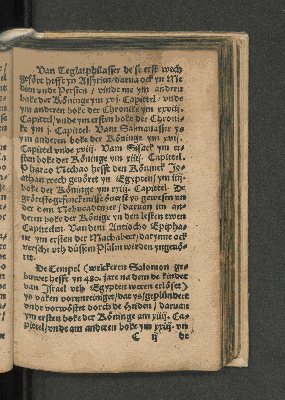 Van Teglatphilasser de se erst wech
gefört hefft yn Assyrien/ darna ock yn Me
dien vnde Persien / vinde me ym andern
boke der Köninge ym xvj. Capittel / vnde
ym andern boke der Chronike ym xxviij.
Capittel/ vnde ym ersten boke der Chroni-
ke ym j. Capittel. Van Salmanasser ys
ym anderen boke der Köninge ym xvij.
Capittel vnde xviij. Vam Sisack ym er-
sten boke der Köninge ym xiiij. Capittel.
Pharao Necho hefft den Köninck Jo-
athan wech gevöret yn Egypten/ ym iiij.
boke der Köninge ym xxiij. Capittel. De
gröteste gefenckenisse öuerst ys gewesen vn
der dem Nebucadnezer / daruan im an-
deren boke der Könige yn den lesten twen
Capittelen. Van dem Antiocho Epipha-
ne ym ersten der Machabeer/ darynne ock
versche vth düssem Psalm werden yngevö-
ret.
De Tempel (welckeren Salomon ge-
buwet hefft yn 480. jare na dem de kinder
van Israel vth Egypten weren erlöset)
ys vaken vorunreiniget/ dar vs geplündert
vnde vorwöstet dorch de Heiden / daruan
ym ersten boke der Köninge am xiiij. Ca-
pittel/ vnde am anderen boke ym xxiij. vn
C ij de